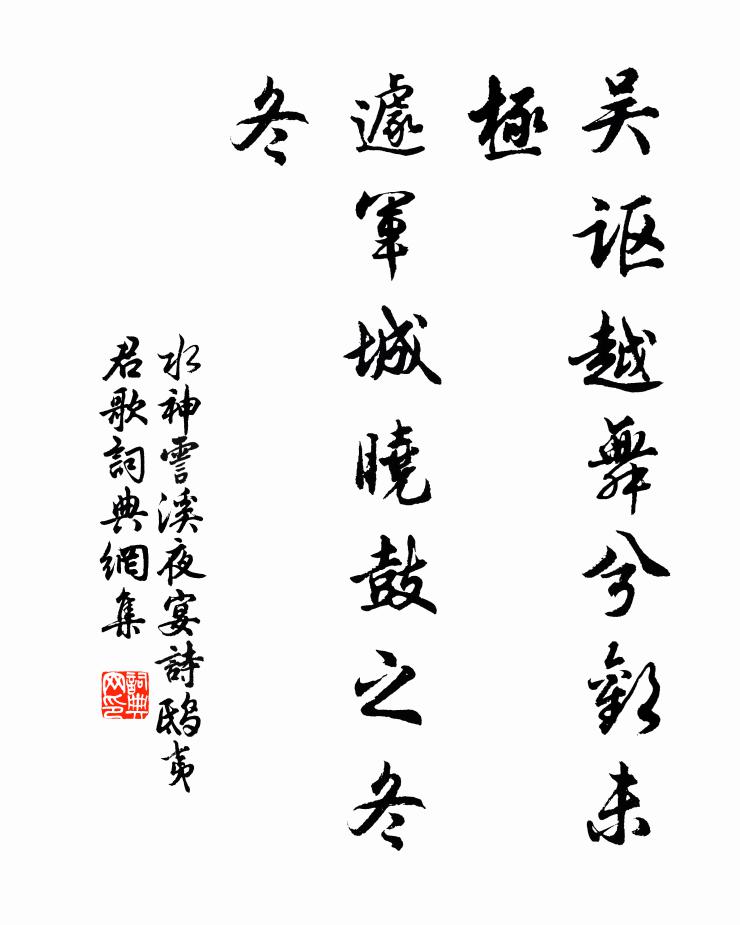 吴讴越舞兮歡未
極
遽軍城曉鼓之冬
冬
水神雲溪夜宴詩鴟夷
君歌詞典網集
詞典
网印